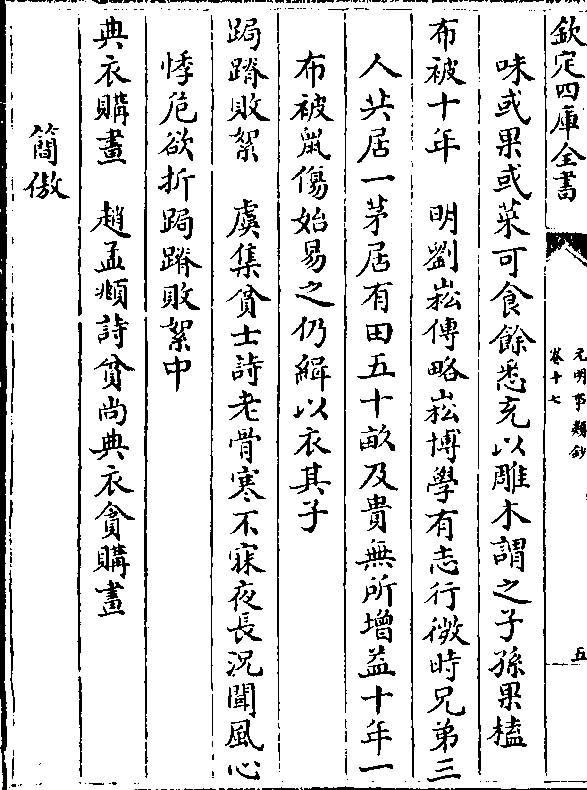 欽定四庫全書
元明事類鈔
卷十七
五
味或果或菜可食餘悉充以雕木謂之子孫果榼
布被十年　明劉崧傳略崧博學有志行微時兄弟三
人共居一茅居有田五十畝及貴無所增益十年一
布被鼠傷始易之仍緝以衣其子
跼蹐敗絮　虞集貧士詩老骨寒不寐夜長況聞風心
悸危欲折跼蹐敗絮中
典衣購畫　趙孟頫詩貧尚典衣貪購畫
簡傲